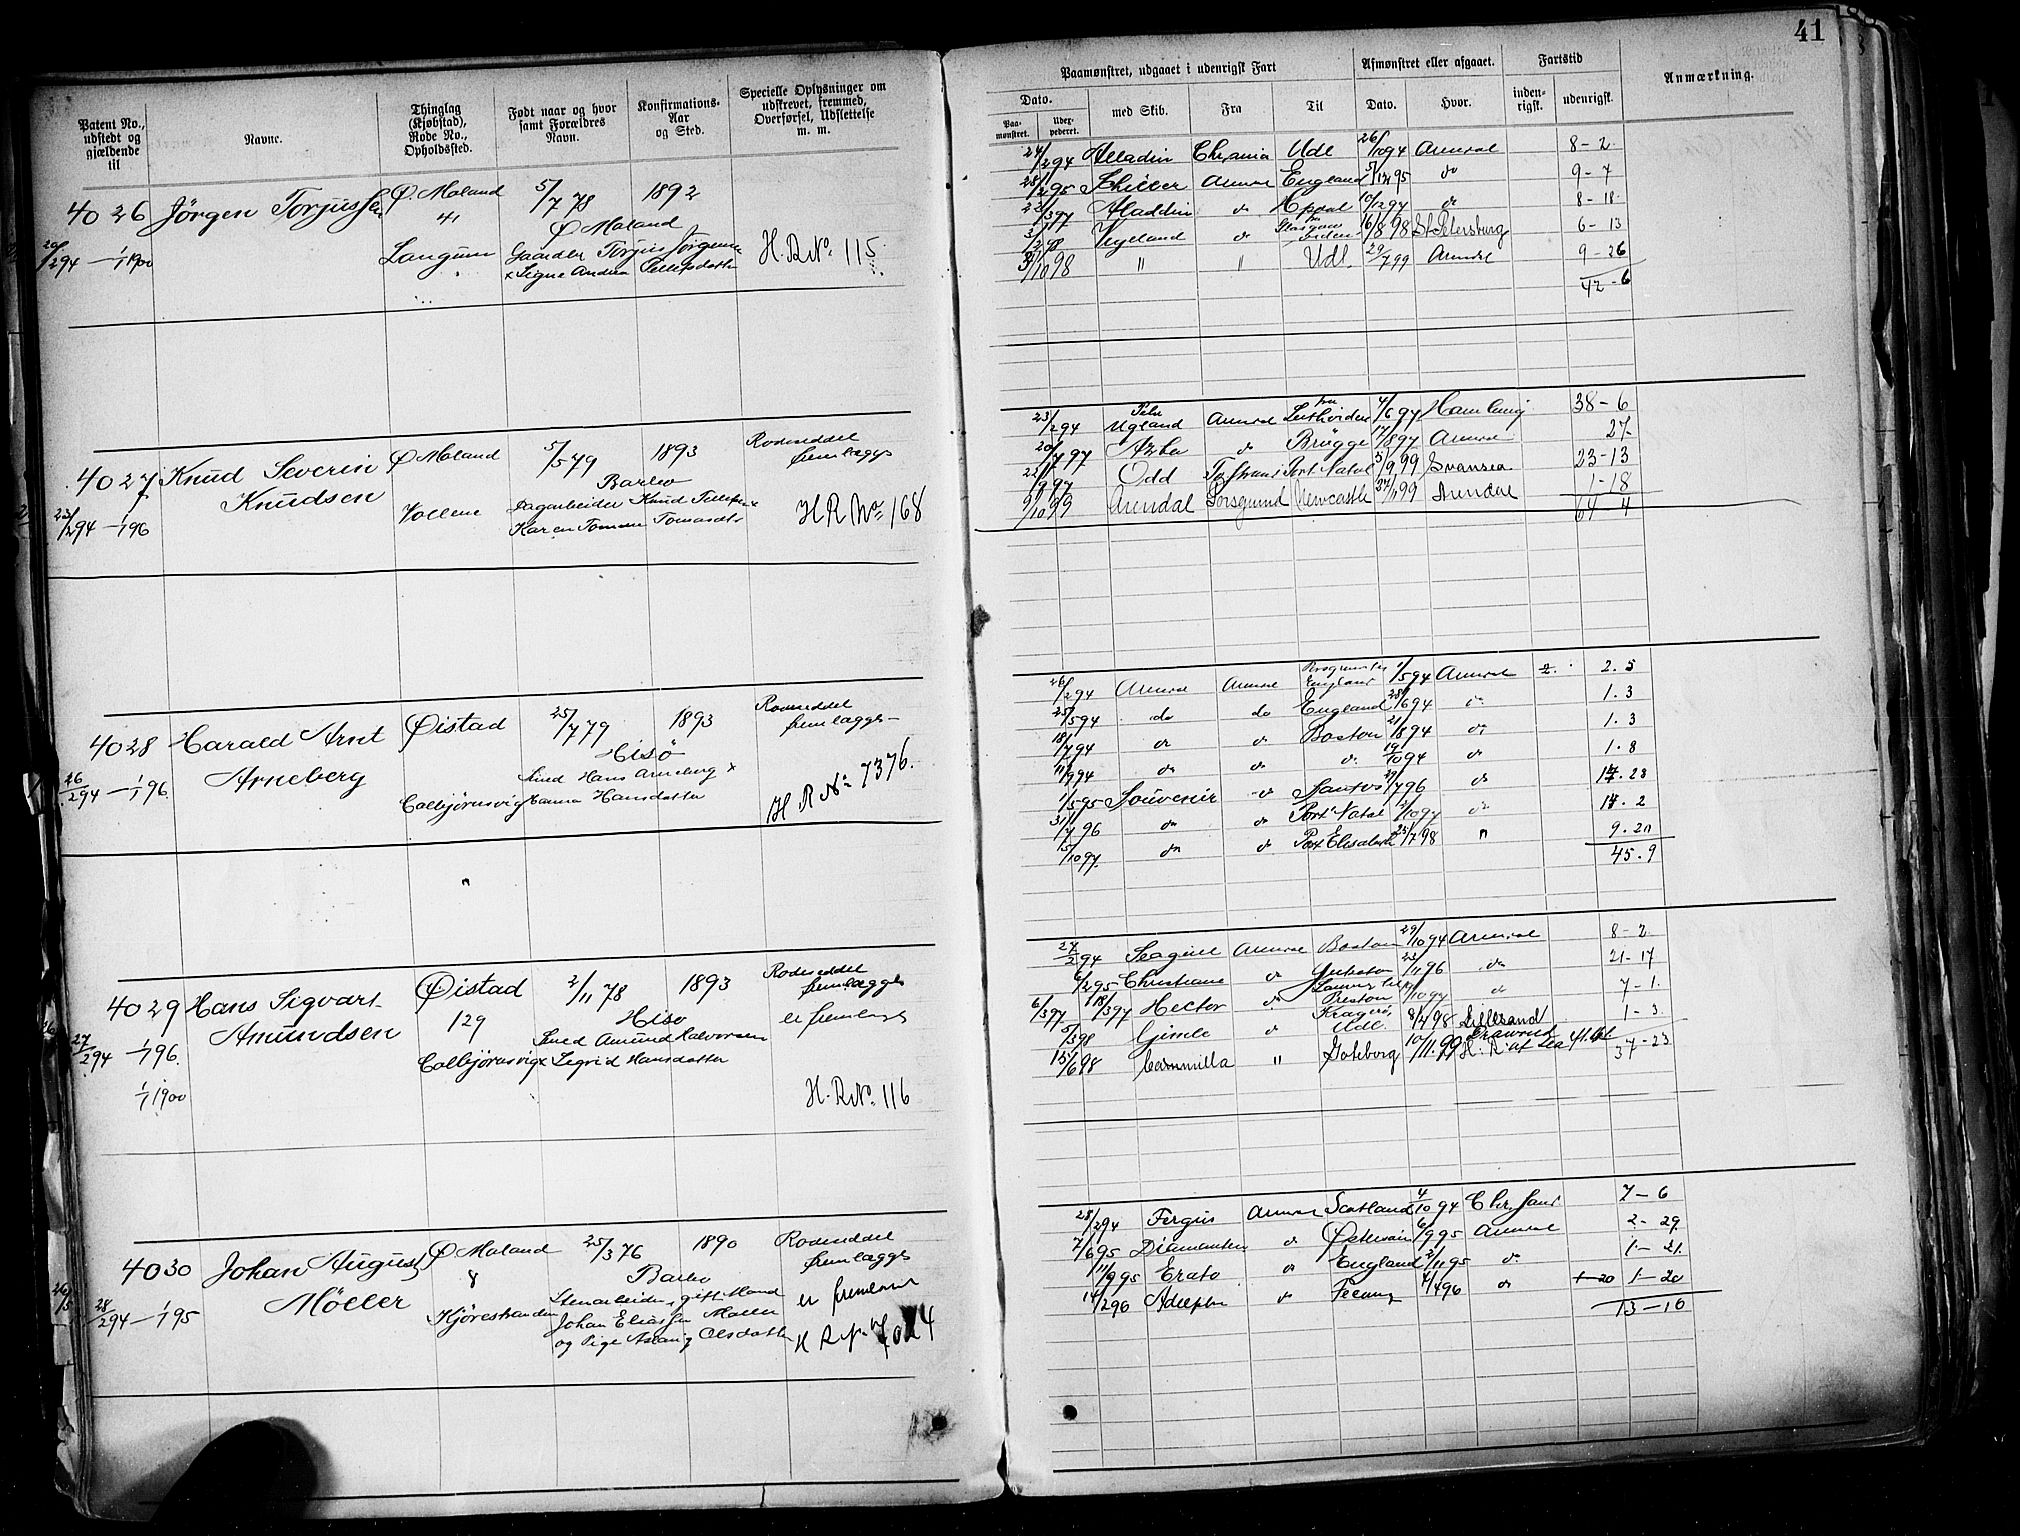 41
Patent No., udstedt og gjældende til
Navne.
Thinglag (Kjøbstad), Rode No., Opholdssted.
Født naar og hvor samt Forældres Navn.
Konfirmations- Aar og Sted.
Specielle Oplysninger om udskrevet, fremmed, Overførsel, Udslettelse m. m.
Paamønstret, udgaaet i udenrigsk Fart
Afmønstret eller afgaaet.
Fartstid
Anmærkning.
Dato.
Paa- mønstret.
Udex- pederet.
med Skib.
Fra
Til
Dato.
Hvor.
inden- rigsk.
udenrigsk.
4026 Jörgen Torjussen Ø. Moland 5/7 78 1892
41 Ø Moland
20/2 94 — 1/1 1900 Langum Gaardbr Torjus Jørgensen
x Signe Andrea Tellefsdatter
H.R.No. 115
24/2 94 Alladin Chrania Udl 26/10 94 Arendal 8-2
28/2 95 Schiller Arendal England 5/12 95 do 9-7
22/3 97 Aladdin do 10/12 97 do 8-18
3/2 98 Vegeland do 16/8 98 St Petersburg 6-13
3/10 98 " " Udl. 29/7 99 Arendal 9-26
42-6
4027 Knud Severin Knudsen Ø Moland 5/5 79 1893 Rodeseddel fremlægges
Barbo
23/2 94 — 1/1 96 Vollene Dagarbeider Knud Tellefsen x
Karen Tomine Tomasdtr
H R No: 168
23/2 94 Ugland Arendal 4/6 97 Hamburg 38-6
20/7 97 do Brügge 17/8 97 Arendal 27-
22/9 97 Odd Port Natal 5/9 99 Svansea 23-13
9/10 99 Arendal Porsgrund Newcastle 27/11 99 Arendal 1-18
64-4
4028 Harald Arnt Arneberg Øistad 25/7 79 1893 Rodeseddel fremlægges
Hisö
26/2 94 — 1/1 96 Smed Hans Arneberg x
Colbjörnsvig Hanna Hansdatter
H R No: 7376.
26/2 94 Arendal Arendal England 1/5 94 Arendal 2. 2. 5
25/5 94 do do England 28/6 94 do 1. 3
18/7 94 do do Boston 21/8 94 do 1. 3
11/9 94 do do do 19/10 94 do 1. 8
1/5 95 Souvenir do Santos 29/7 96 do 14. 28
31/7 96 do do Port Natal 2/10 97 do 14. 2
15/10 97 do do Port Elisabeth 25/7 98 " 9. 20
45. 9
4029 Hans Sigvart Amundsen Øistad 2/11 78 1893 Rodeseddel fremlægges
129 Hisö er fremlagt
27/2 94 — 1/1 96 Smed Amund Halvorsen
Colbjörnsvig x Sigrid Hansdatter
1/1 1900
H.R.No. 116
27/2 94 Seagull Arendal Boston 29/10 94 Arendal 8-2
1/2 95 Christiane do 22/11 96 do 21-17
6/3 97 18/3 97 Hector do Preston 10 97 do 7-1.
5/3 98 Gimle do Kragerö Udl. 8/4 98 Lillesand 1-3
15/6 98 Cammilla " Goteborg 10/11 99 37-23
4030 Johan August Möller Ø. Moland 25/3 76 1890 Rodeseddel fremlægges
8 Barbo
28/2 94 — 1/1 95 Kjörestranden Stenarbeider, gift Mand er fremlagt
Johan Eliassen Möller
og Pige Aslaug Olsdatter
H R No 7024
28/2 94 Fergus Arendal Scotland 4/10 94 Chr.sand 7-6
7/6 95 Diamanten do Östersöen 6/9 95 Arendal 2-29
11/9 95 Erato do England 2/11 95 do 1-21.
14/2 96 Adelphi do 4/4 96 do 1-20 1-20
13-16